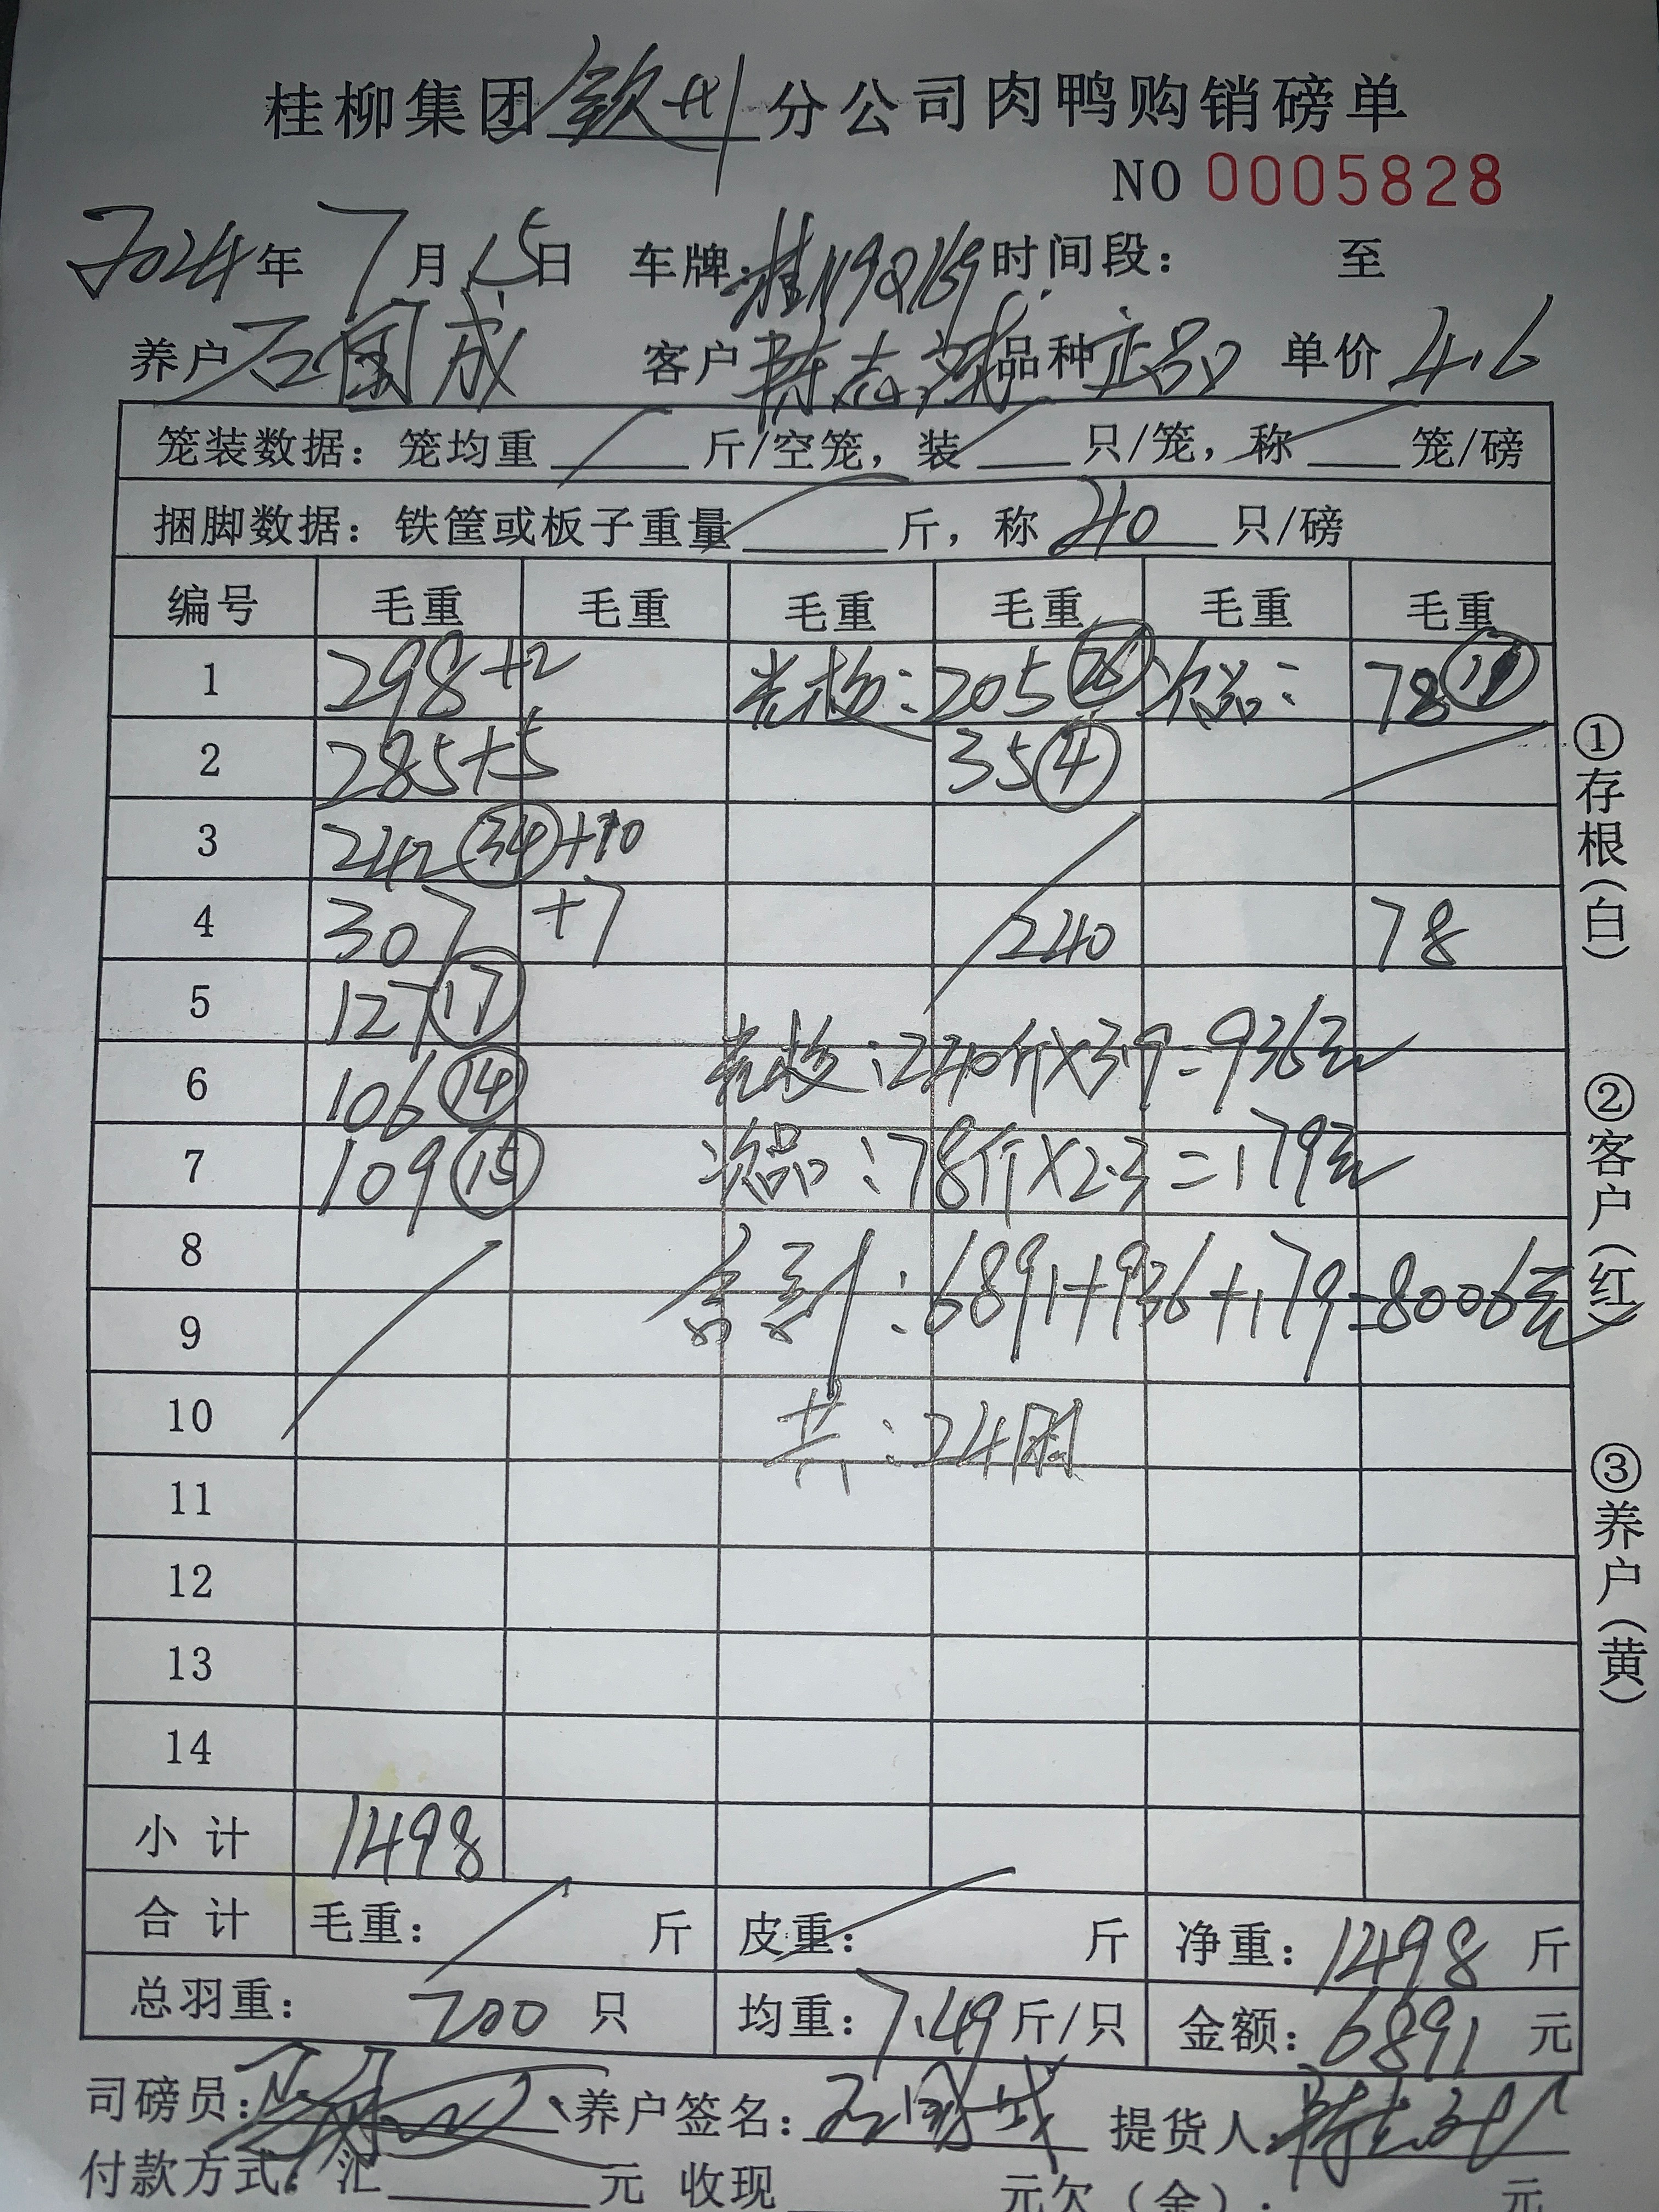 桂柳集团钦州分公司肉鸭购销磅单
NO 0005828
2024年 7月 15日 车牌:桂N9Q169 时间段: 至
养户 石国成 客户 陈志 品种 正品 单价 4.6
笼装数据: 笼均重 斤/空笼, 装 只/笼, 称 笼/磅
捆脚数据: 铁筐或板子重量 斤, 称 40 只/磅
编号 毛重 毛重 毛重 毛重 毛重 毛重
1 298+2 205 次品: 78
2 285+5 35④
3 242㉞+10
4 307 +7 240 78
5 127⑰
6 106⑭ :240斤×3.9=936元
7 109⑮ 次品:78斤×2.3=179元
8
9 合计:6891+936+179=8006元
10 共:24
11
12
13
14
小计 1498
合计 毛重: 斤 皮重: 斤 净重: 1498 斤
总羽重: 200 只 均重: 7.49 斤/只 金额: 6891 元
司磅员: 养户签名: 石国成 提货人:
付款方式: 汇 元 收现 元欠(金): 元
①存根(白)
②客户(红)
③养户(黄)